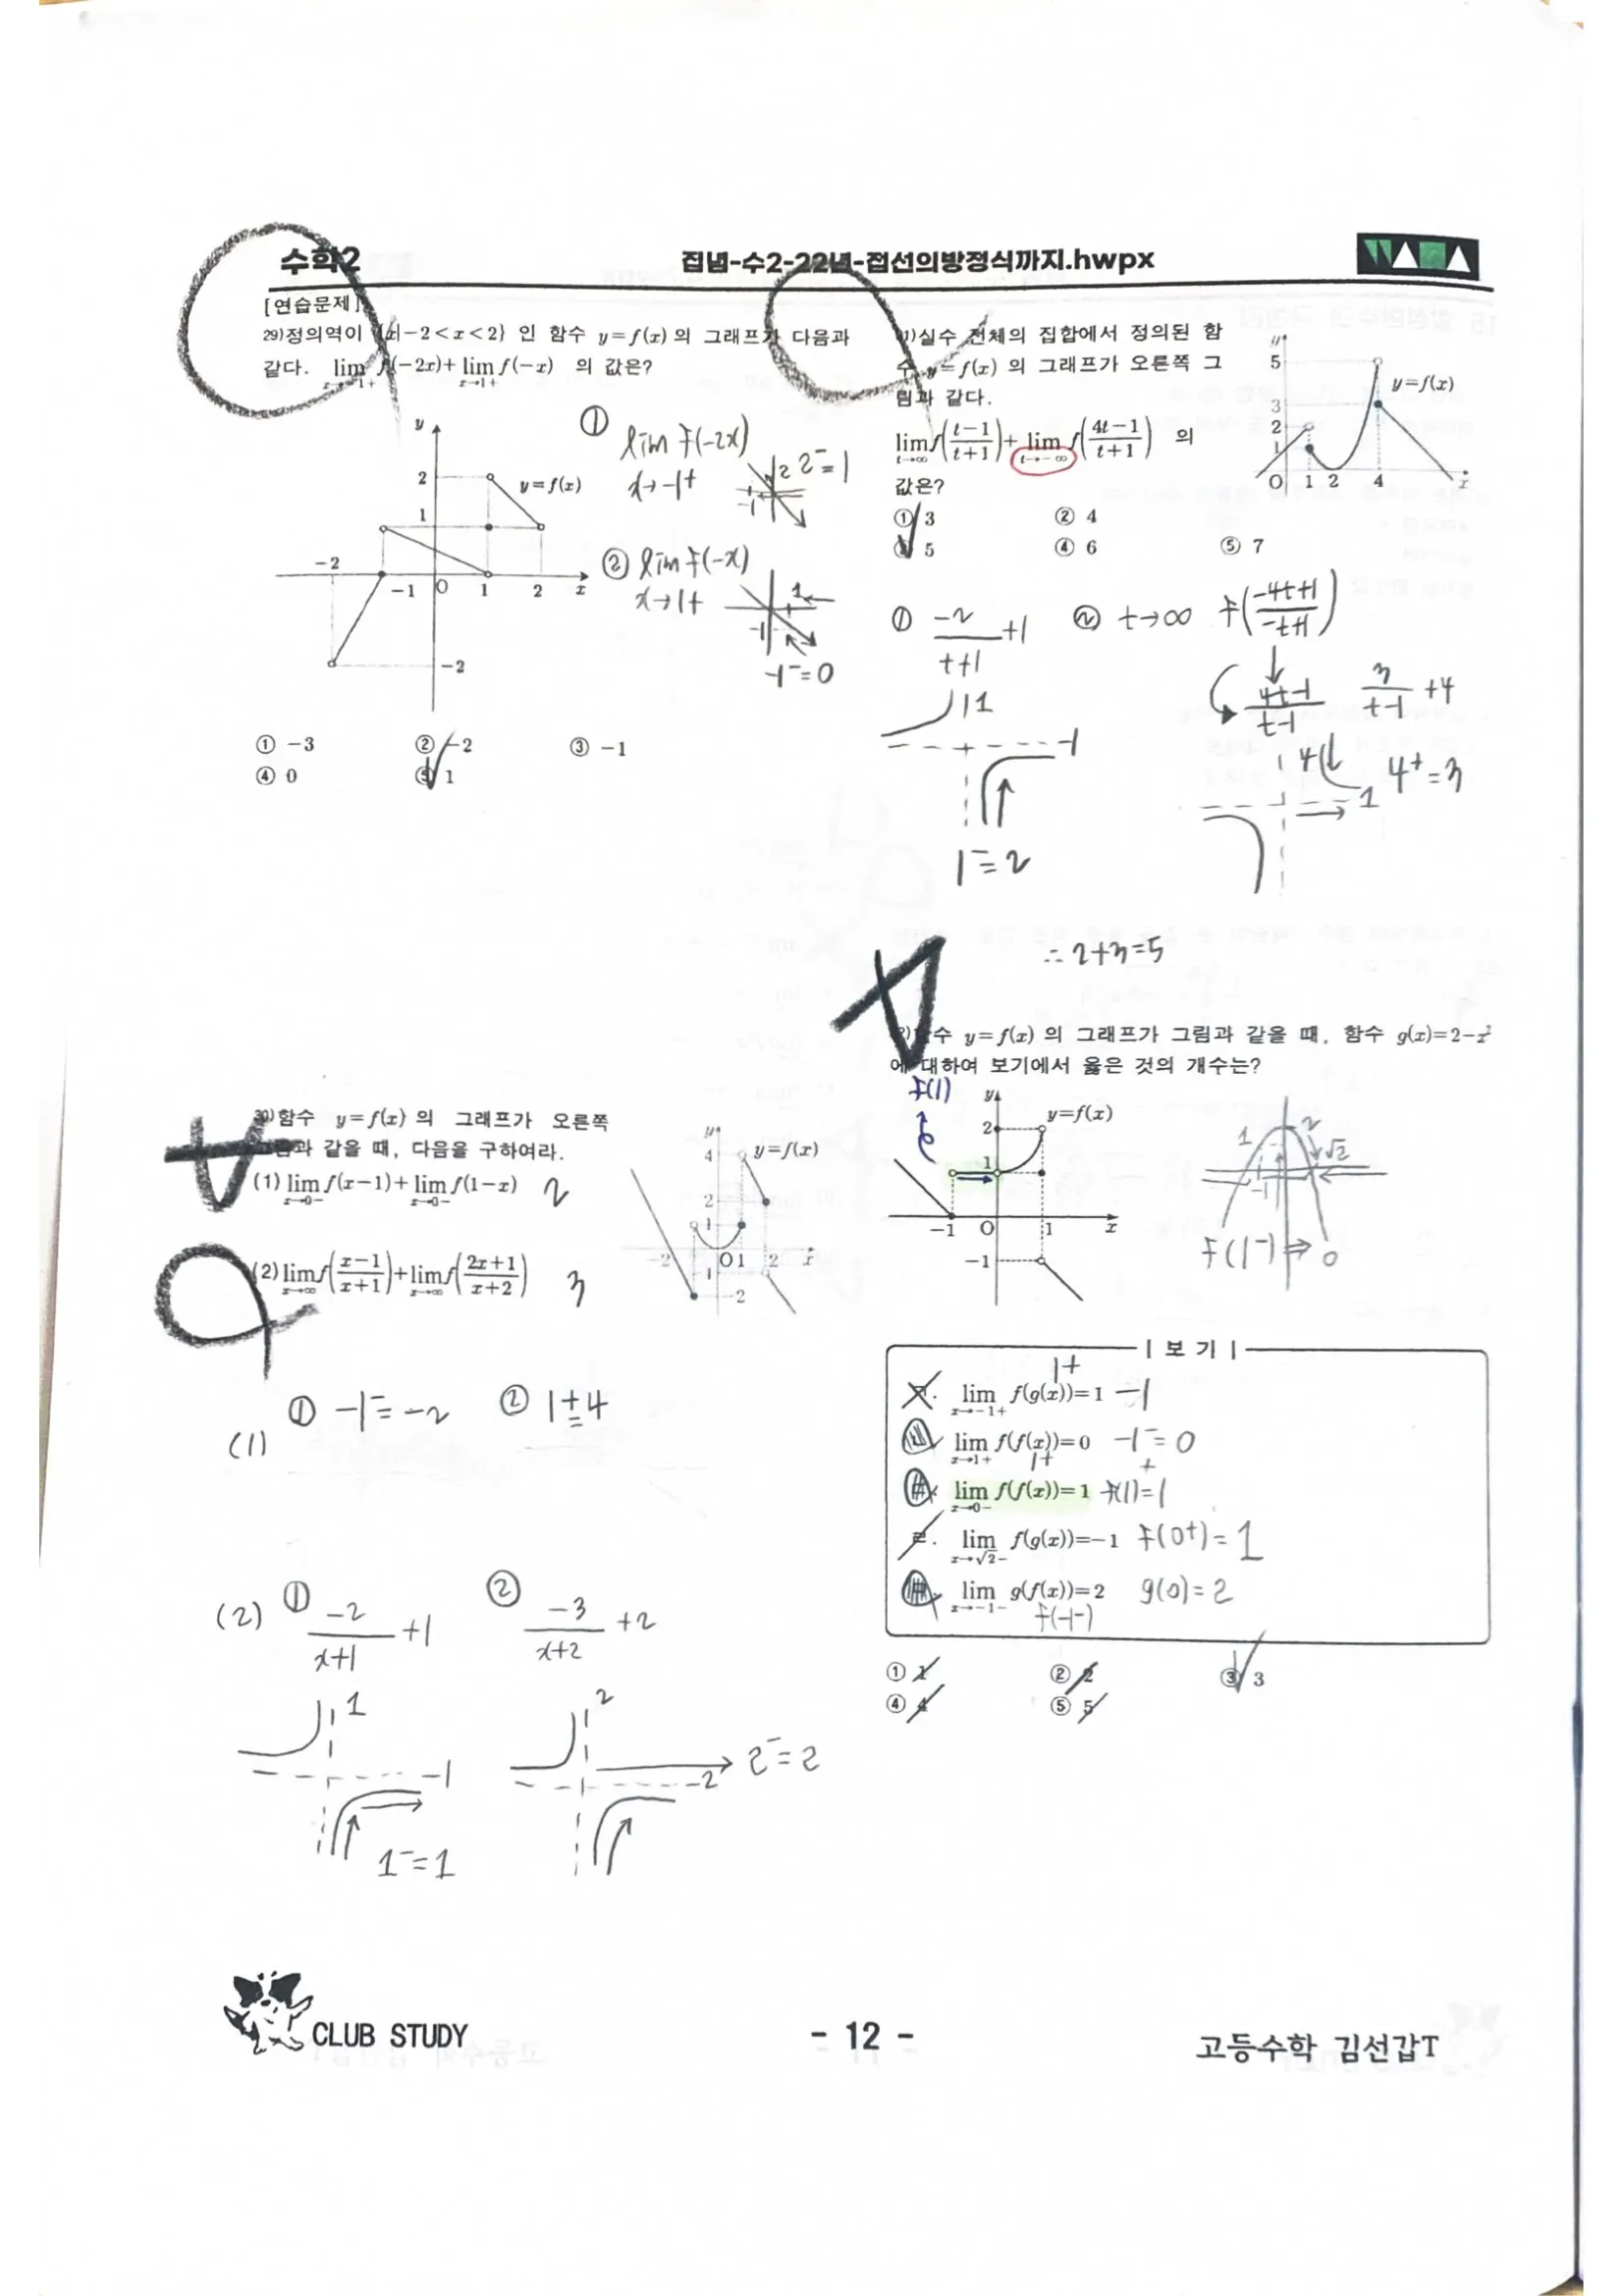 수학2
집념-수2-22년-접선의방정식까지.hwpx
[연습문제]
29)정의역이 {x|-2<x<2} 인 함수 y=f(x) 의 그래프가 다음과
같다. lim x→-1+ f(-2x)+ lim x→1+ f(-x) 의 값은?
y
2
y=f(x)
1
-2
-1
O
1
2
x
-2
① lim f(-2x)
x→-1+
2
2⁻=1
-1
② lim f(-x)
x→1+
1
-1
-1⁻=0
① -3
② -2
③ -1
④ 0
⑤ 1
30)함수 y=f(x) 의 그래프가 오른쪽
그림과 같을 때, 다음을 구하여라.
(1) lim x→0- f(x-1)+ lim x→0- f(1-x) 2
(2) lim x→∞ f((x-1)/(x+1))+ lim x→∞ f((2x+1)/(x+2)) 3
y
4
y=f(x)
2
1
-2
O
1
2
x
-1
-2
(1) ① -1⁻=-2 ② 1+=4
(2) ① -2/(x+1) +1 ② -3/(x+2) +2
1
-1
1⁻=1
2
-2
2⁻=2
31)실수 전체의 집합에서 정의된 함
수 y=f(x) 의 그래프가 오른쪽 그
림과 같다.
lim t→∞ f((t-1)/(t+1))+ lim t→-∞ f((4t-1)/(t+1)) 의
값은?
y
5
y=f(x)
3
2
1
O
1
2
4
x
① 3
② 4
③ 5
④ 6
⑤ 7
① -2/(t+1) +1
② t→∞ f((-4t+1)/(-t+1))
(4t-1)/(t-1)
3/(t-1) +4
1
-1
1⁻=2
4
1
4⁺=3
∴ 2+3=5
32)함수 y=f(x) 의 그래프가 그림과 같을 때, 함수 g(x)=2-x²
에 대하여 보기에서 옳은 것의 개수는?
f(1)
y
2
y=f(x)
1
-1
O
1
x
-1
1
2
√2
-1
f(1⁻)⇒0
| 보 기 |
1+
ㄱ. lim x→-1+ f(g(x))=1 -1
ㄴ. lim x→1+ f(f(x))=0 -1⁻=0
1+
+
ㄷ. lim x→0- f(f(x))=1 f(1)=1
ㄹ. lim x→√2- f(g(x))=-1 f(0+)=1
ㅁ. lim x→-1- g(f(x))=2 g(0)=2
f(-1-)
① 1
② 2
③ 3
④ 4
⑤ 5
CLUB STUDY
- 12 -
고등수학 김선갑T